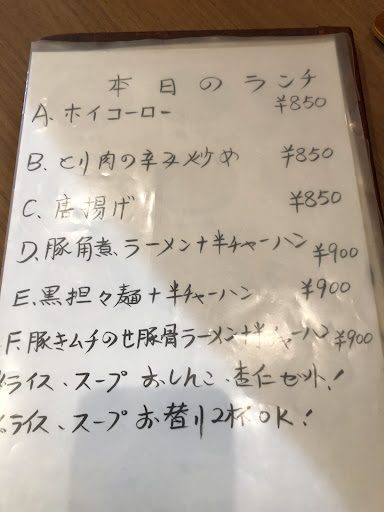 本日のランチ
A、ホイコーロー ¥850
B、とり肉の辛み炒め ¥850
C、唐揚げ ¥850
D、豚角煮ラーメン+半チャーハン ¥900
E、黒担々麺+半チャーハン ¥900
F、豚きムチのせ豚骨ラーメン+半チャーハン ¥900
ライス、スープ おしんこ、杏仁セット!
ライス、スープ お替り2杯OK!